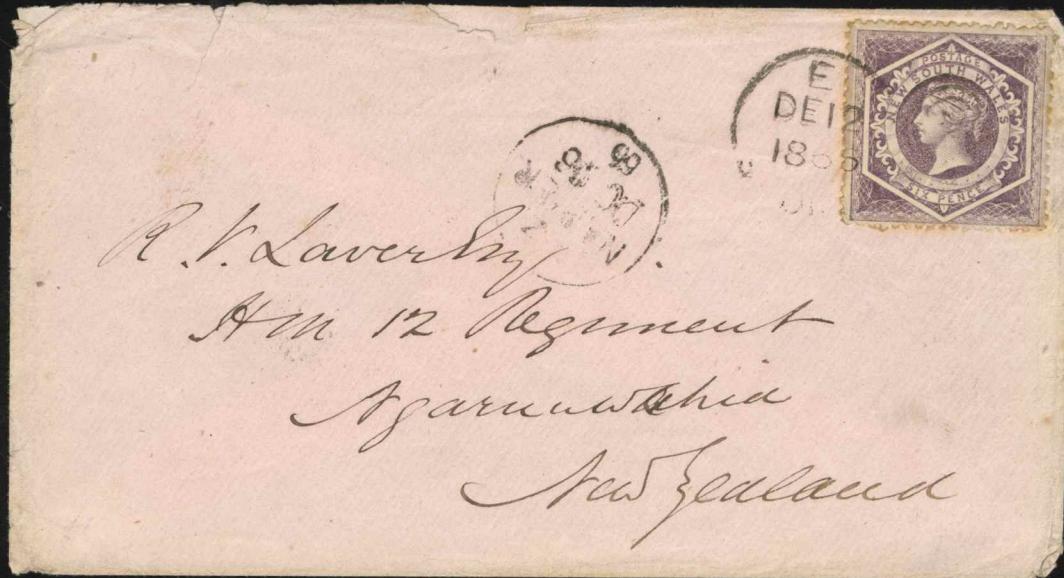 POSTAGE
NEW SOUTH WALES
SIX PENCE
E
DE 12
186
R. V. Laver Esq
HM 12 Regiment
Ngaruawahia
New Zealand